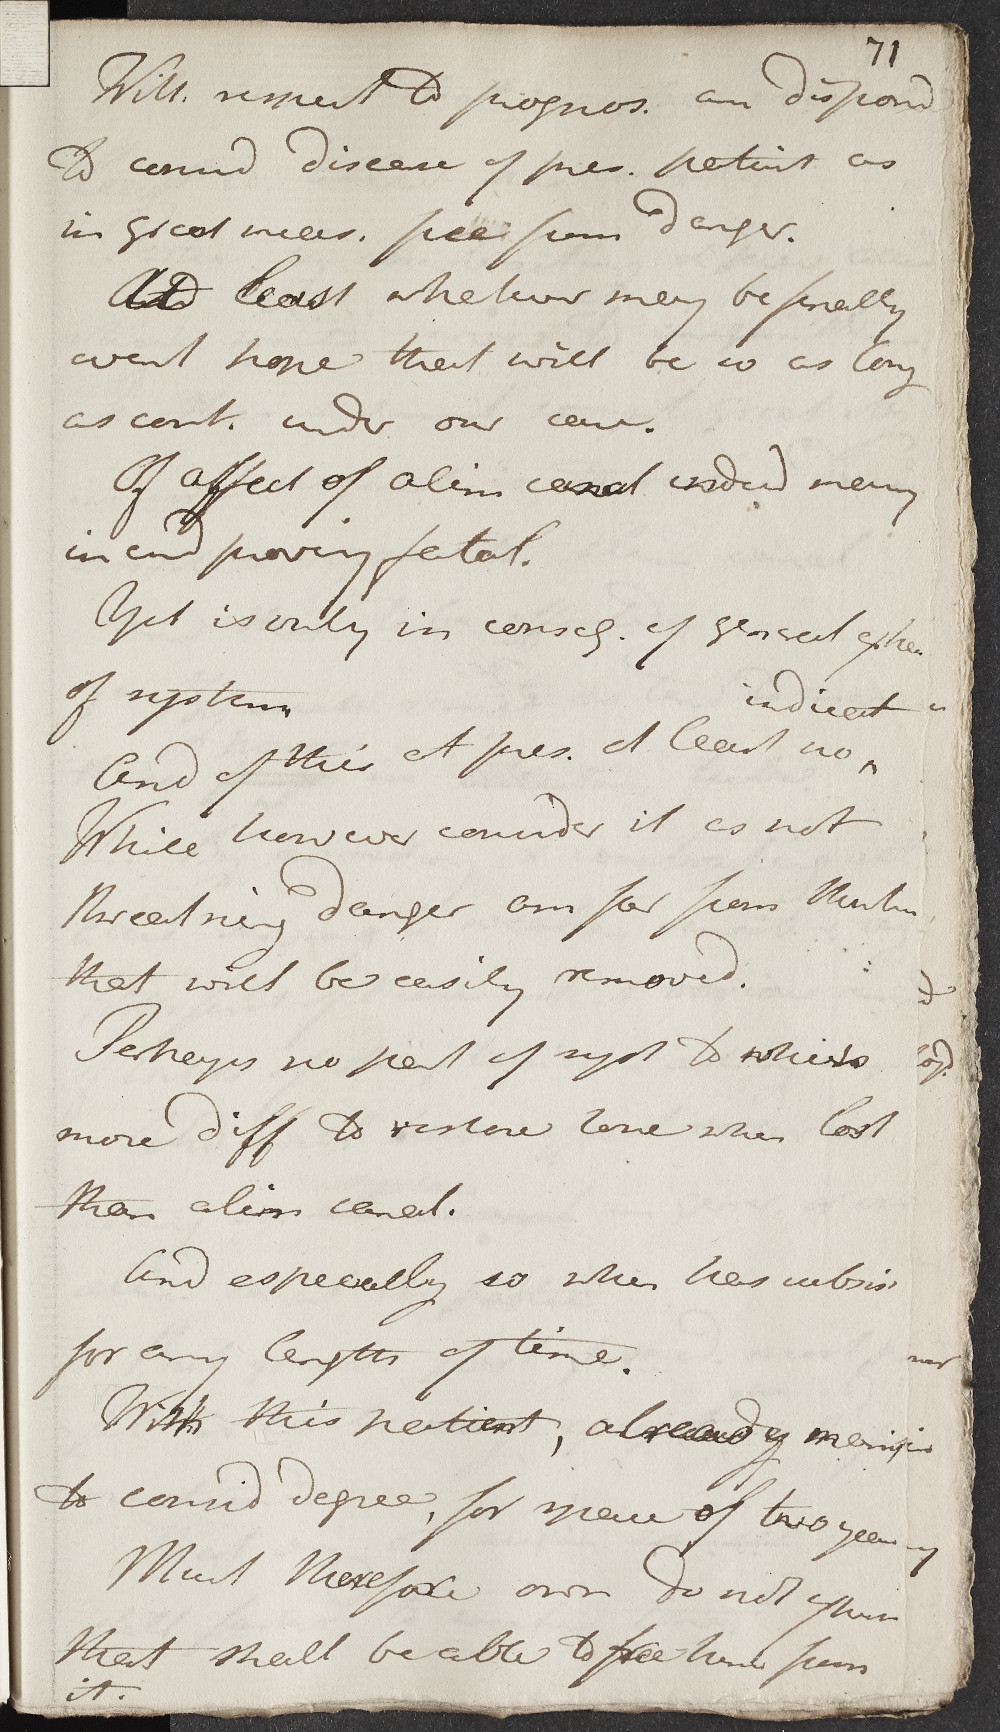 71
With. respect to prognos. am dispond
to consid disease of pres. patient as
in great meas. free from danger.
At least whatever may be finally
event hope that will be so as long
as cont. under our care.
Of affect of alim canal indeed many
in end proving fatal.
Yet is only in conseq. of general
of system
indicat
And of this at pres. at least no
While however consider it as not
threatning danger am far from thinkin
that will be easily removed.
Perhaps no part of syst to which
more diff to restore tone when lost
than alim canal.
And especially so when has subsis
for any length of time.
With this patient, already
to consid degree, for space of two years
Must therefore own do not
that shall be able to free him from
it.